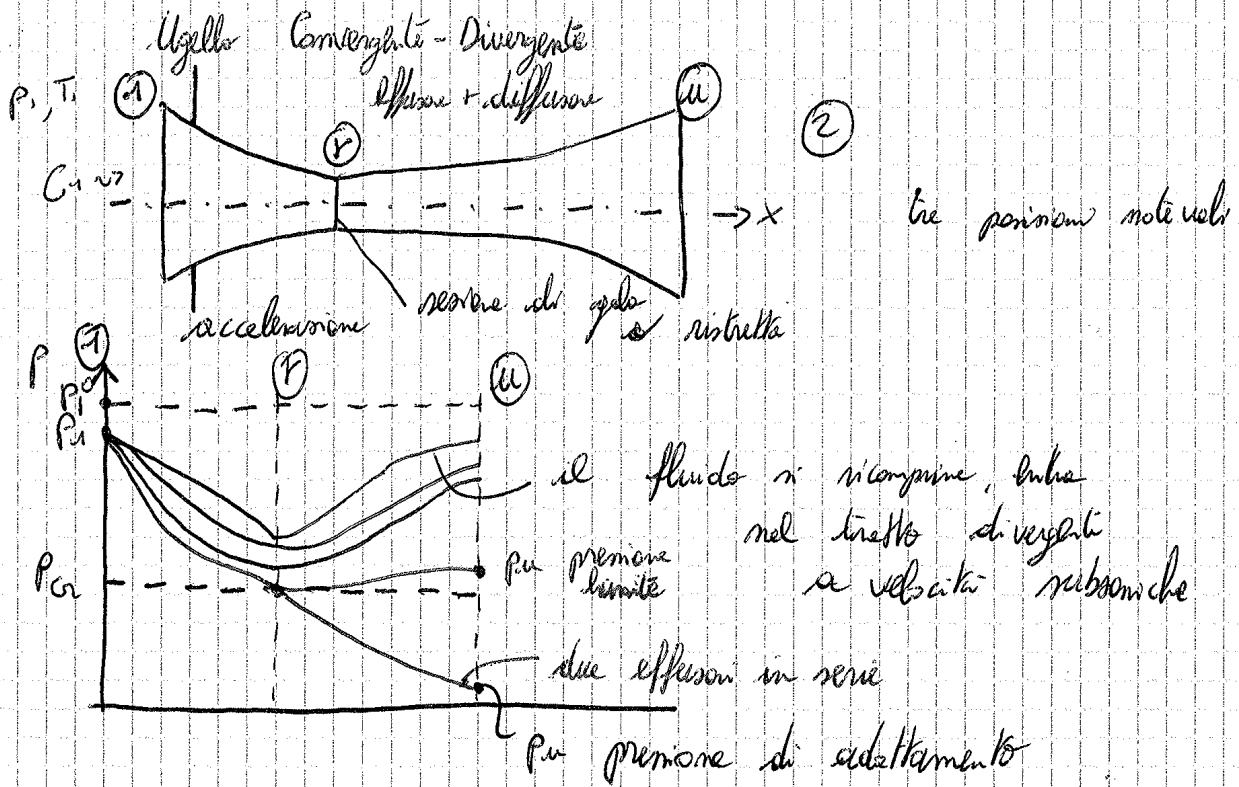 Ugello Convergente - Divergente
effusore + diffusore
P1, T1
1
u
r
2
C1
→ x
tre posizioni notevoli
accelerazione
sezione di gola
o ristretta
P
1
r
u
P1°
P1
il fluido si ricomprime, entra
nel tratto divergente
a velocità subsoniche
Pcr
Pu pressione
limite
due effusori in serie
Pu pressione di adattamento